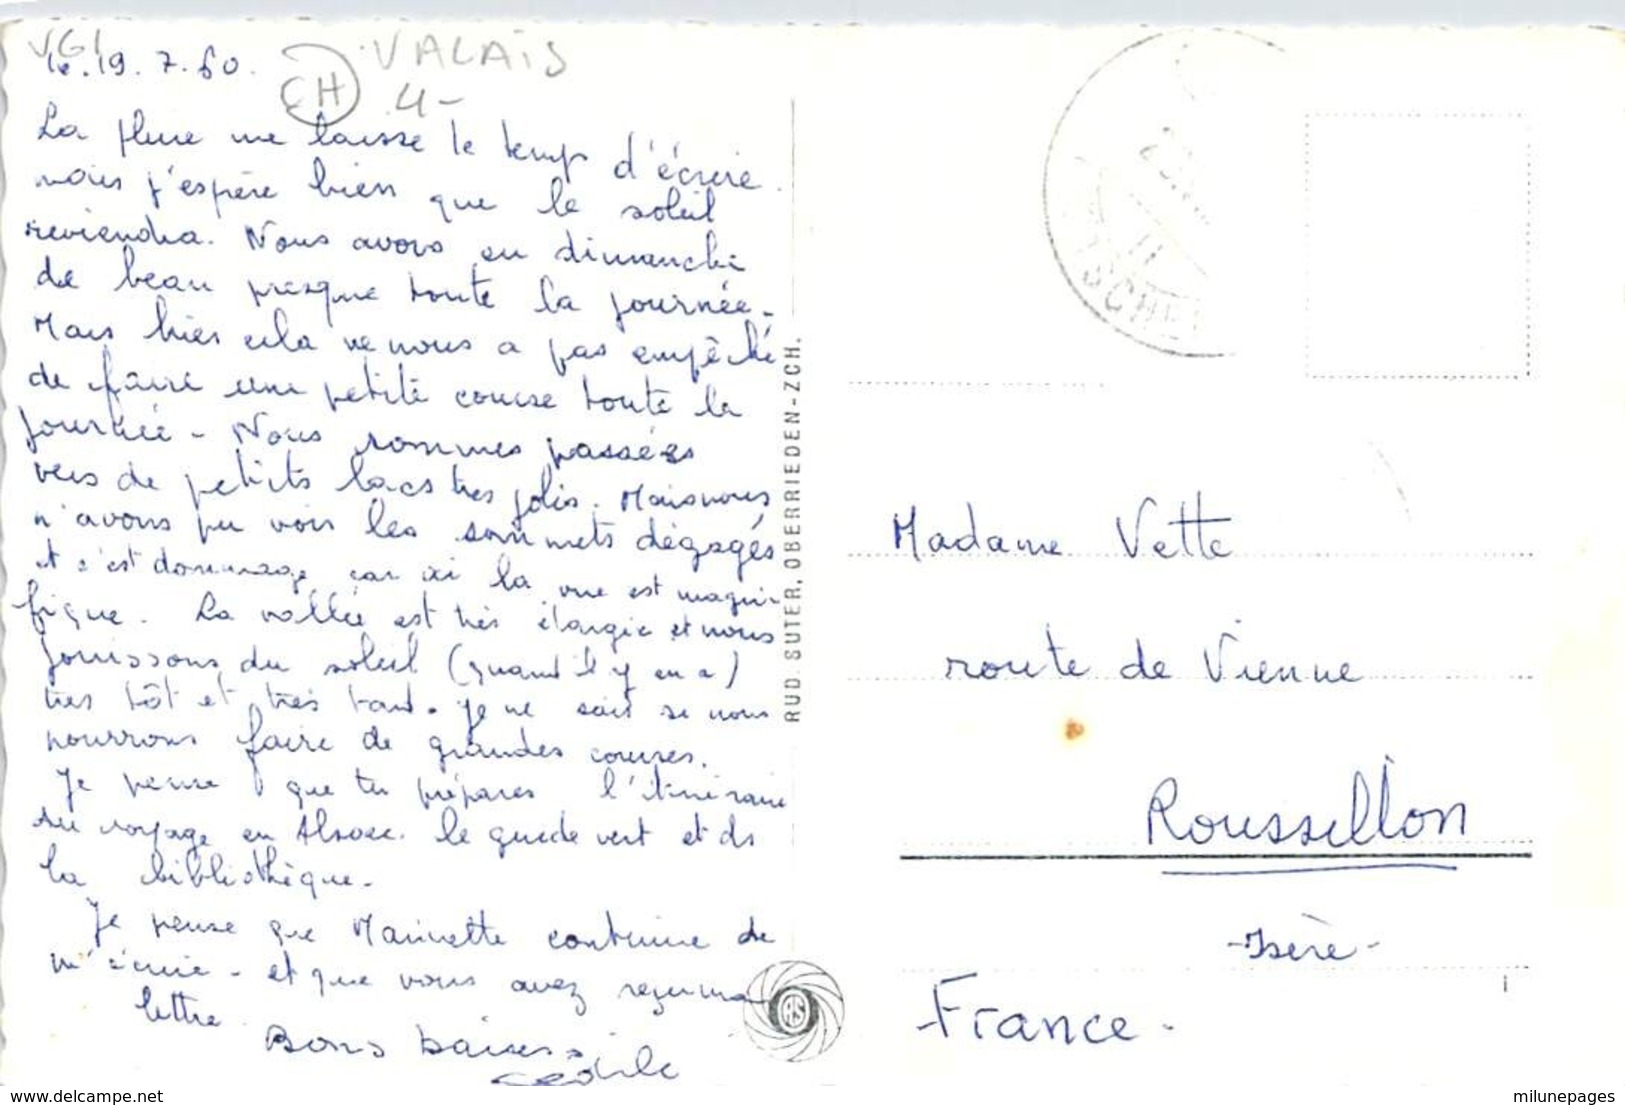 VG1
le 19.7.60.
CH
VALAIS
4-
La pluie me laisse le temps d'écrire
mais j'espère bien que le soleil
reviendra. Nous avons eu dimanche
de beau presque toute la journée.
Mais hier cela ne nous a pas empêché
de faire une petite course toute la
journée - Nous sommes passées
vers de petits lacs très jolis. Mais nous
n'avons pu voir les sommets dégagés
et c'est dommage car ici la vue est magni-
fique. La vallée est très élargie et nous
jouissons du soleil (quand il y en a)
très tôt et très tard. Je ne sais si nous
pourrons faire de grandes courses.
Je pense que tu prépares l'itinéraire
du voyage en Alsace. le guide vert est ds
la bibliothèque.
Je pense que Marinette continue de
m'écrire - et que vous avez reçu ma
lettre
Bons baisers
Cécile
RUD. SUTER, OBERRIEDEN-ZCH.
RS
Madame Vette
route de Vienne
Roussillon
-Isère-
France-
delcampe.net
milunepages